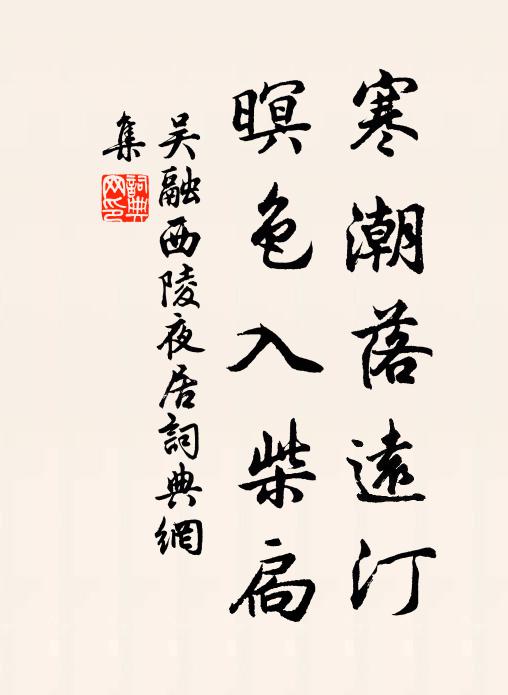 寒潮落遠汀
暝色入柴扃
吳融西陵夜居詞典網
集
詞典
网印